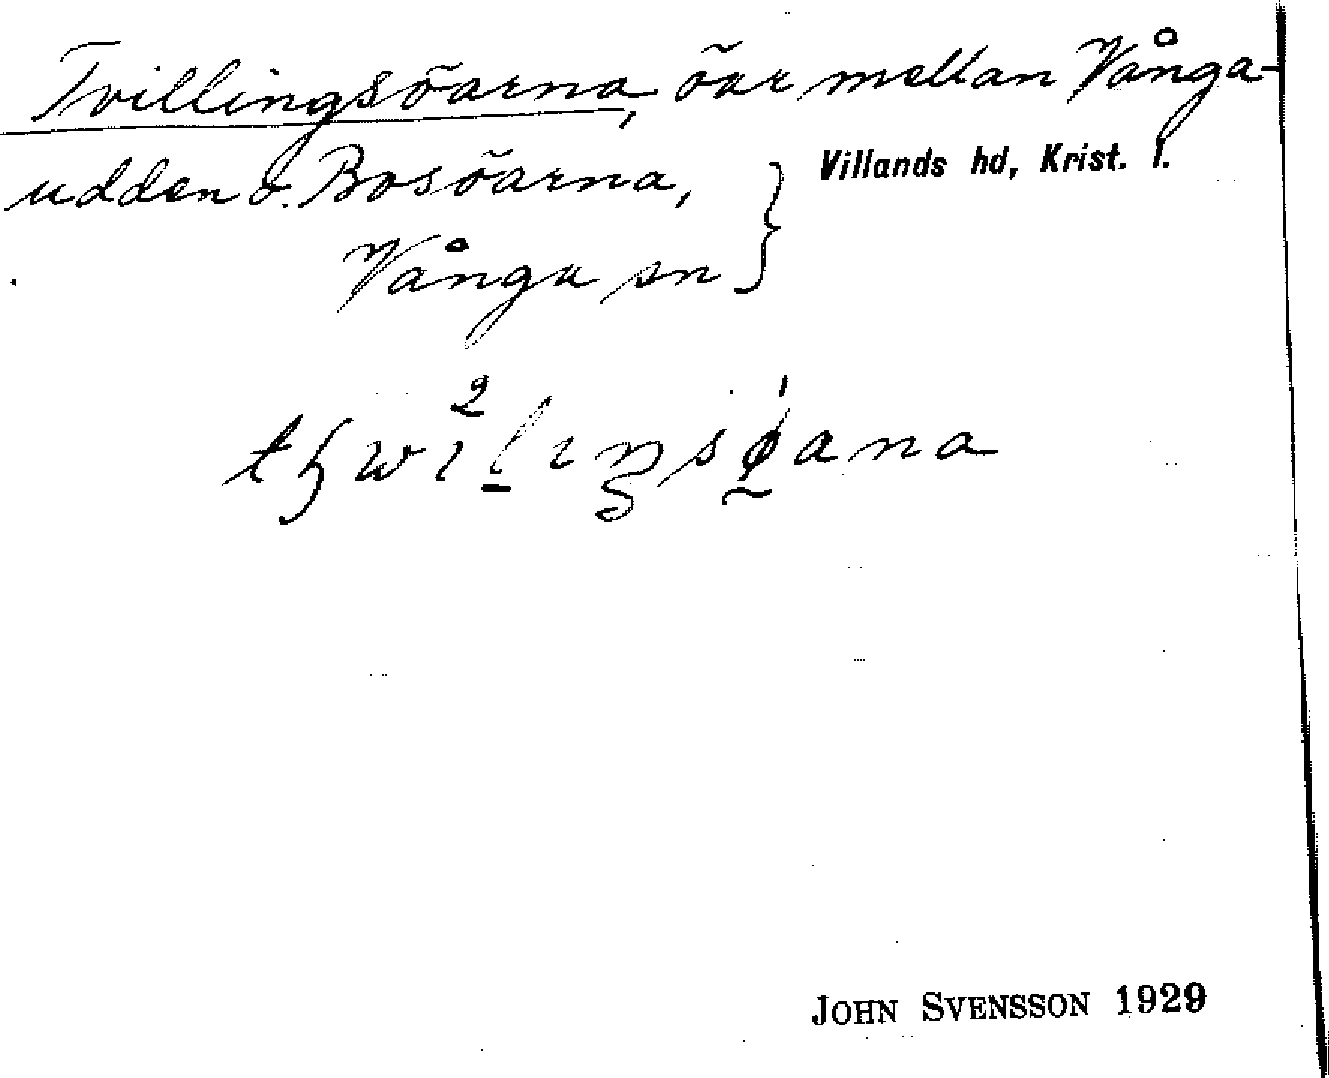 Tvillingsöarna, öar mellan Vånga-
udden o. Bosöarna,
Villands hd, Krist. l.
Vånga sn
JOHN SVENSSON 1929